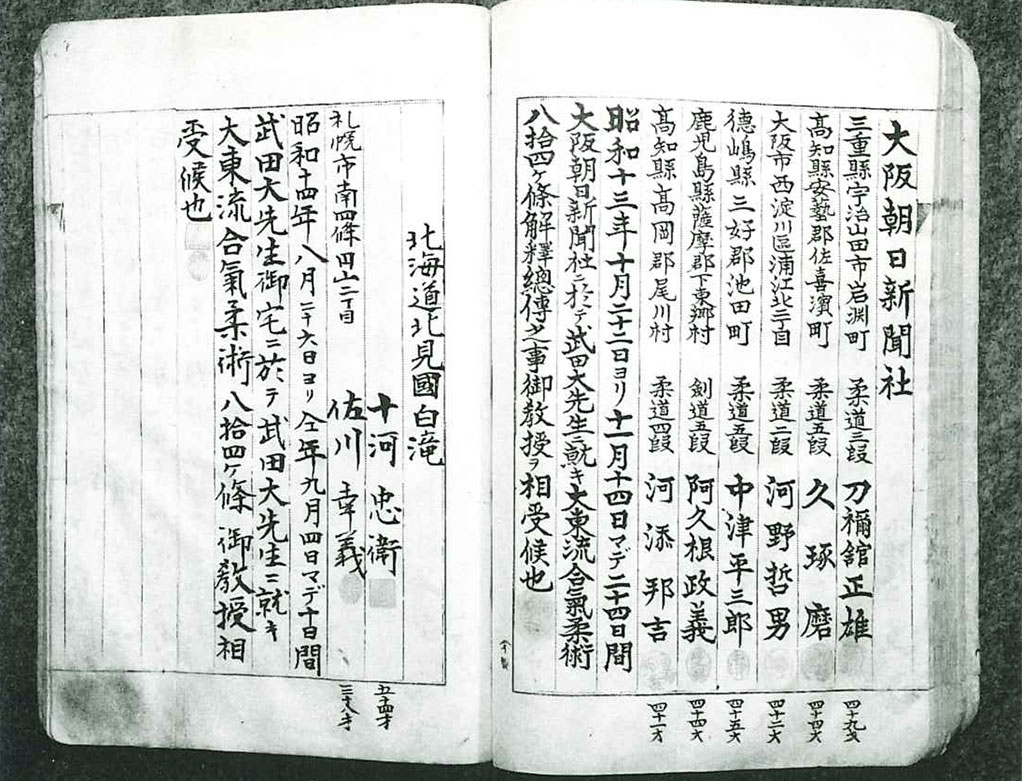 大阪朝日新聞社
三重縣宇治山田市岩淵町 柔道三段 刀禰舘正雄 四十九才
高知縣安藝郡佐喜濱町 柔道五段 久琢磨 四十四才
大阪市西淀川區浦江北二丁目 柔道二段 河野哲男 四十二才
德嶋縣三好郡池田町 柔道五段 中津平三郎 四十五才
鹿児島縣薩摩郡下東郷村 劍道五段 阿久根政義 四十四才
高知縣高岡郡尾川村 柔道四段 河添邦吉 四十一才
昭和十三年十月二十二日ヨリ十一月十四日マデ二十四日間
大阪朝日新聞社ニ於テ武田大先生ニ就キ大東流合氣柔術
八拾四ケ條解釋總傳之事御教授ヲ相受候也
北海道北見國白滝
十河忠衛 五十四才
札幌市南四條円山二丁目 佐川幸義 三十八才
昭和十四年八月二十六日ヨリ仝年九月四日マデ十日間
武田大先生御宅ニ於テ武田大先生ニ就キ
大東流合氣柔術八拾四ケ條御教授相
受候也